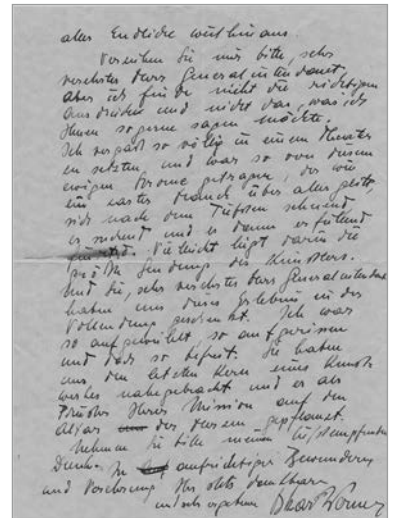 alles Endliche weit hinaus.
Verzeihen Sie mir bitte, sehr
verehrter Herr Generalintendant
aber ich finde nicht die richtigen
aus drücken und nicht das, was ich
Ihnen so gerne sagen möchte.
Ich vergaß so völlig in einem Theater
zu sitzen, und war so von diesem
ewigen Strome getragen, der wie
ein zarter Hauch über alles geistert,
sich nach dem Tiefsten sehnend
es suchend und es dann erfüllend
Vielleicht liegt darin die
größte Sendung des Künstlers.
Und Sie, sehr verehrter Herr Generalintendant
haben uns dieses Erlebnis in der
Vollendung geschenkt. Ich war
so aufgewühlt, so aufgerissen
und doch so befreit. Sie haben
uns den letzten Kern eines Kunst-
werkes nahegebracht und es als
Priester Ihrer Mission auf den
Altar des
Nehmen Sie bitte meinen tiefstempfunden
Dank. In aufrichtiger Bewunderung
und Verehrung Ihr stets dankbarer
und sehr ergebener